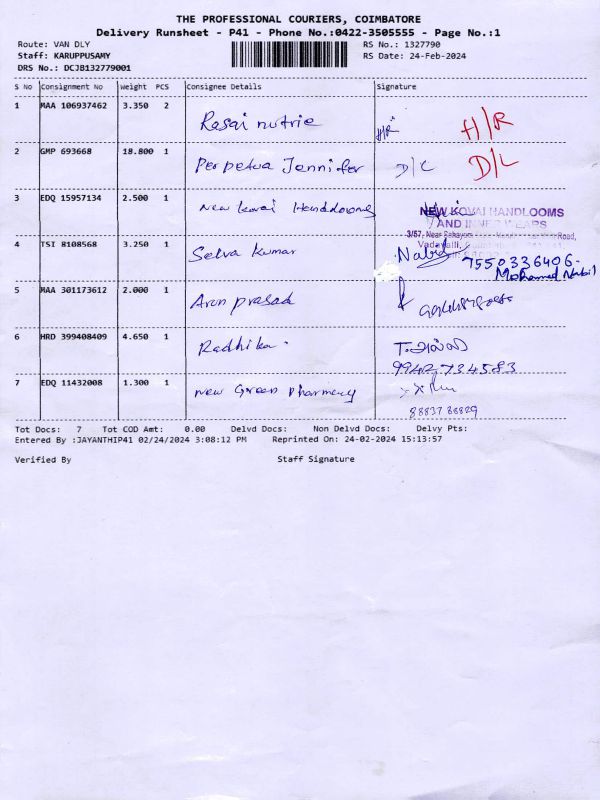 THE PROFESSIONAL COURIERS, COIMBATORE
Delivery Runsheet - P41 - Phone No.:0422-3505555 - Page No.:1
Route: VAN DLY RS No.: 1327790
Staff: KARUPPUSAMY RS Date: 24-Feb-2024
DRS No.: DCJB132779001
S No Consignment No Weight PCS Consignee Details Signature
1 MAA 106937462 3.350 2 Resai nutrie H/R H/R
2 GMP 693668 18.800 1 Perpetua Jennifer D/L D/L
3 EDQ 15957134 2.500 1 New Kovai Handdooms
NEW KOVAI HANDLOOMS
AND INNER WEARS
3/57, Near Road,
Vadavalli,
4 TSI 8108568 3.250 1 Selva Kumar Nabil 7550336406-
Mohamed Nabil
5 MAA 301173612 2.000 1 Arun prasad
6 HRD 399408409 4.650 1 Radhika
9942734583
7 EDQ 11432008 1.300 1 New Green Pharmacy
88837 88889
Tot Docs: 7 Tot COD Amt: 0.00 Delvd Docs: Non Delvd Docs: Delvy Pts:
Entered By :JAYANTHIP41 02/24/2024 3:08:12 PM Reprinted On: 24-02-2024 15:13:57
Verified By Staff Signature